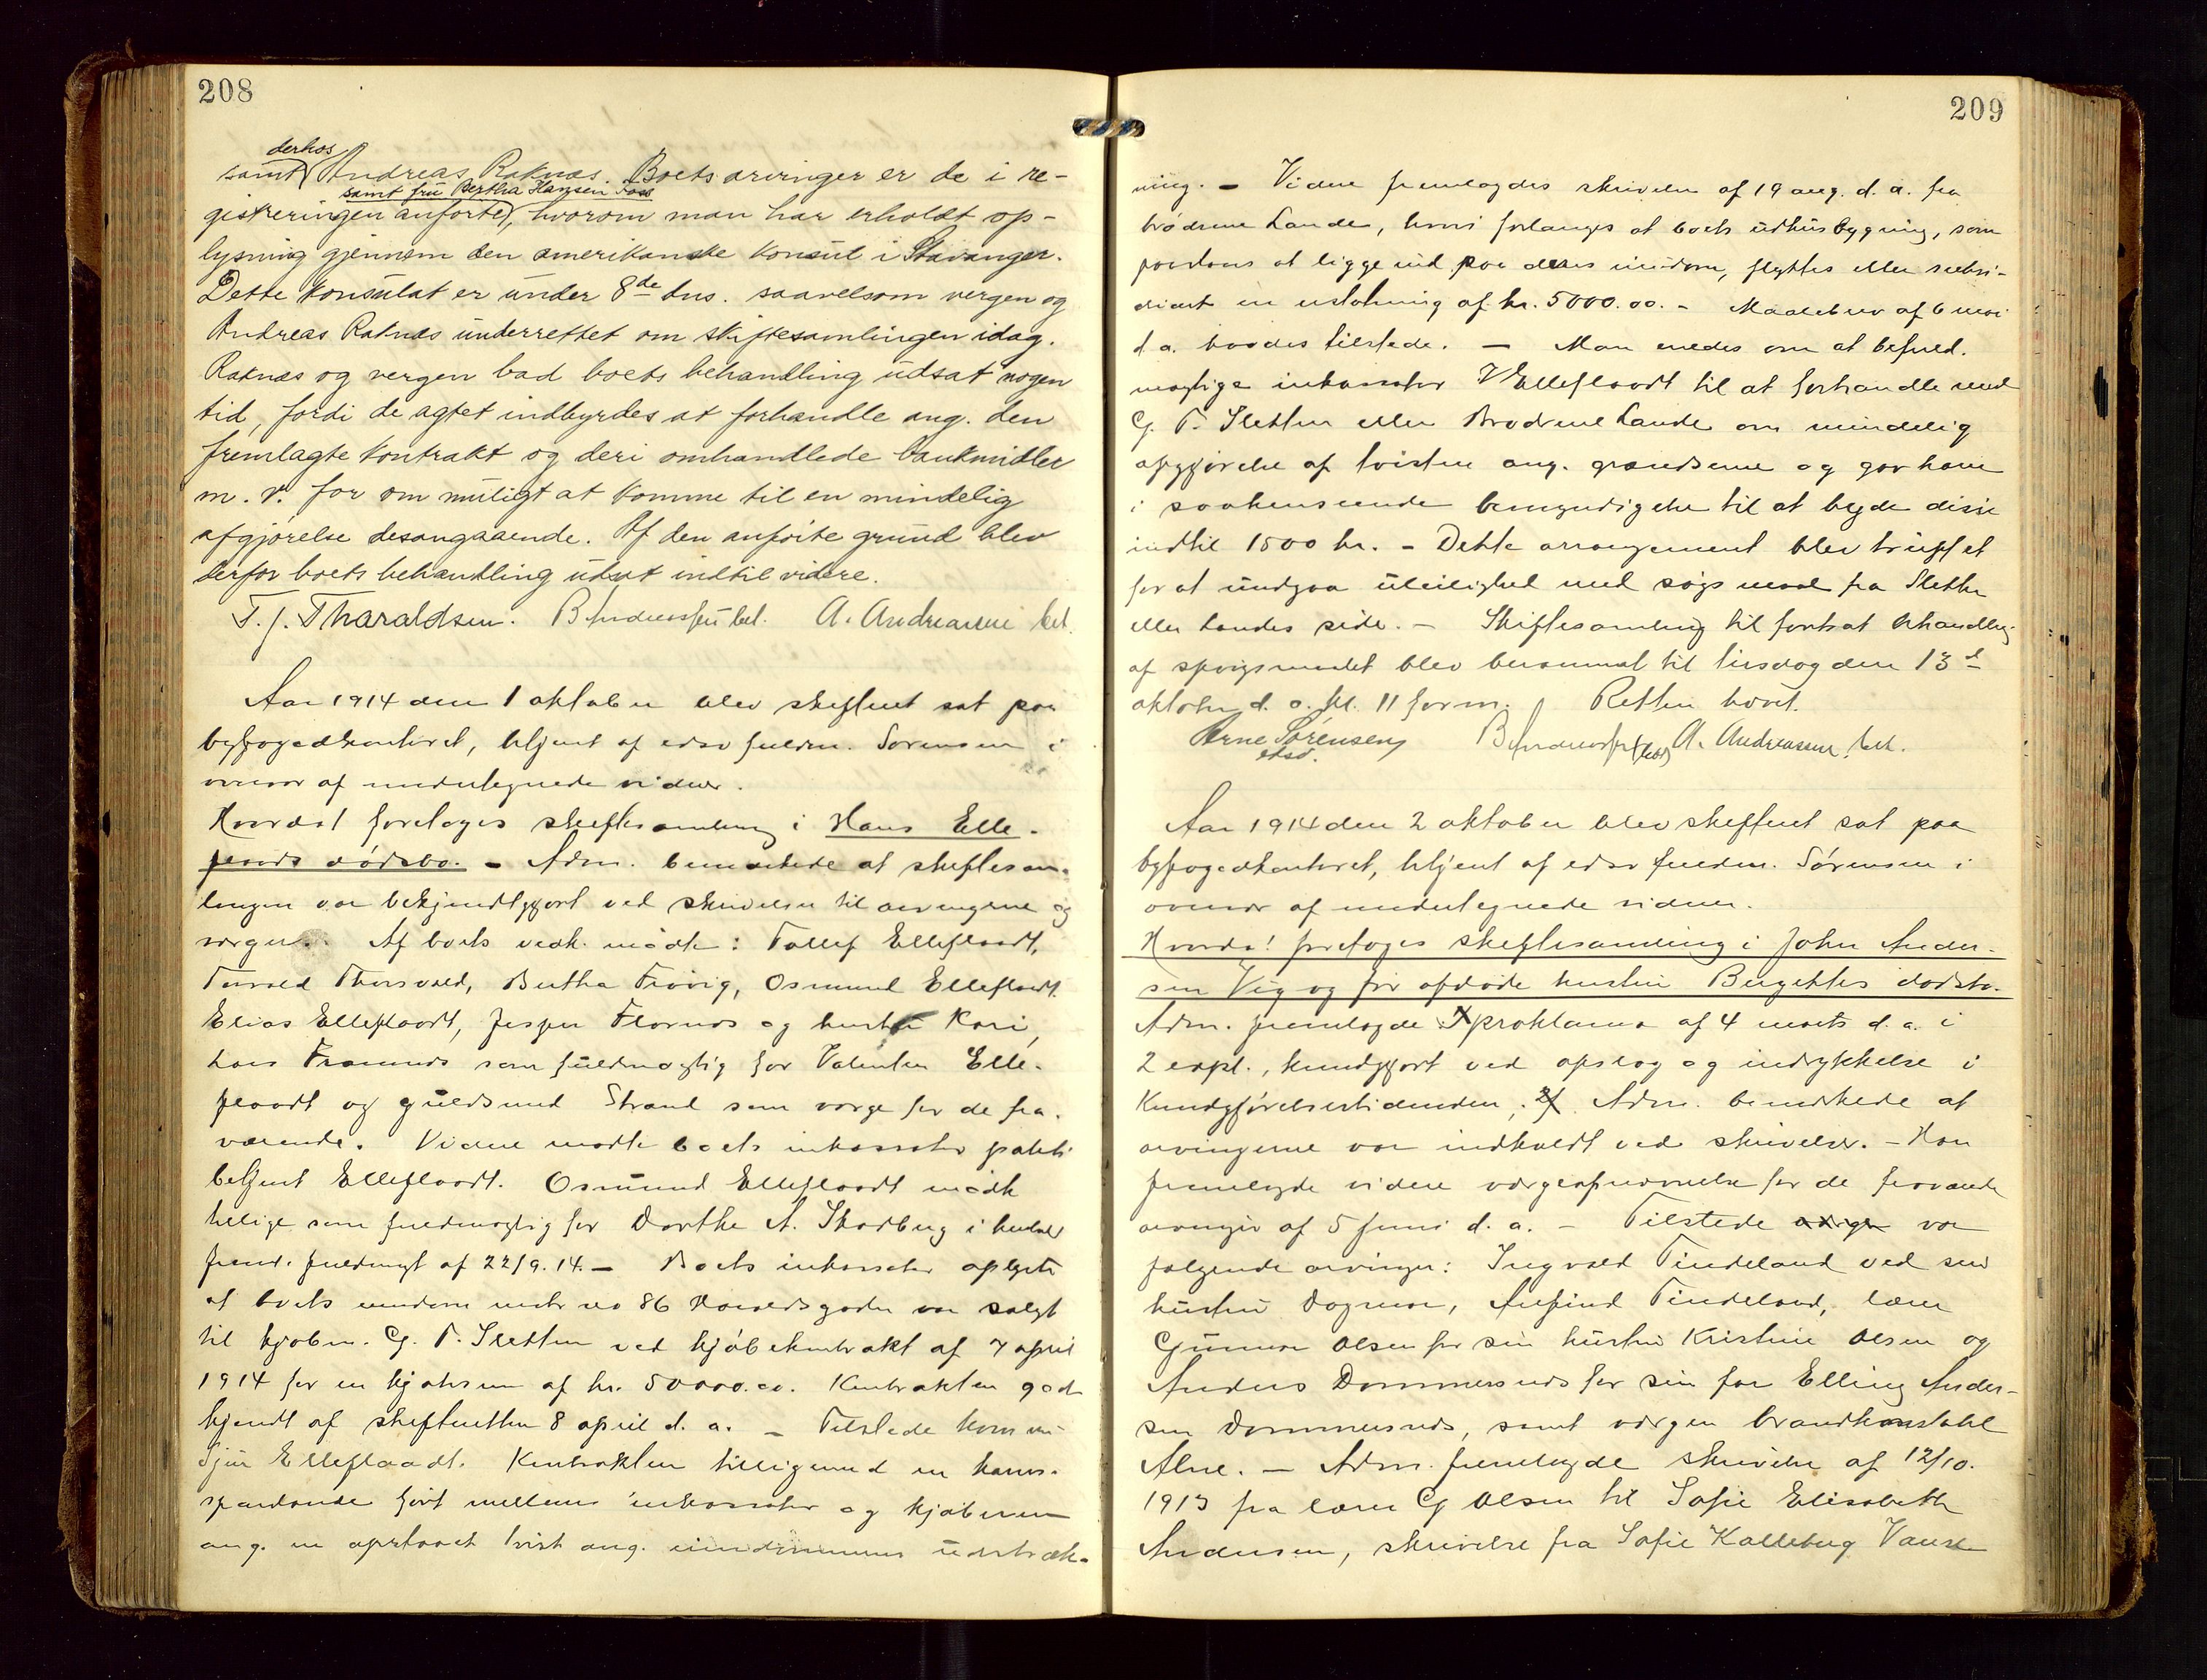 208
derhos
samt Andreas Raknæs. Boets arvinger er de i re-
samt fru Bertha Hansen Foss
gistreringen anførte, hvorom man har erholdt op-
lysning gjennem den amerikanske konsul i Stavanger.
Dette konsulat er under 8de ds. saavelsom vergen og
Andreas Raknæs underrettet om skiftesamlingen idag.
Raknæs og vergen bad boets behandling udsat nogen
tid, fordi de agtet indbyrdes at forhandle ang. den
fremlagte kontrakt og deri omhandlede bankmidler
m. v. for om muligt at komme til en mindelig
afgjørelse desangaaende. Af den anførte grund blev
derfor boets behandling udsat indtil videre.
T. J. Tharaldsen. B Andreassen bet. A. Andreassen bet.
Aar 1914 den 1 oktober blev skifteret sat paa
byfogedkontoret, betjent af edsv fuldm. Sørensen i
overvær af undertegnede vidner.
Hvorda! foretoges skiftesamling i Hans Elle-
flaads dødsbo. – Adm. bemerkede at skiftesam-
lingen var bekjendtgjort ved skrivelse til arvingerne og
vergen. Af boets vedk. mødte: Tollef Elleflaadt,
Torvald Thorsvald, Bertha Frøvig, Osmund Elleflaadt
Elias Elleflaadt, Jesper Flornes og hustru Kari,
Lars Framnes som fuldmægtig for Valentin Elle-
flaadt og guldsmed Strand som verge for de fra-
værende. Videre mødte boets inkassator politi-
betjent Elleflaadt. Osmund Elleflaadt mødte
tillige som fuldmægtig for Dorthe A. Skadberg i henhold
freml. fuldmagt af 22/9.14. – Boets inkassator oplyste
at boets eiendom matr no 86 Haraldsgaden var solgt
til kjøbm. G. T. Sletten ved kjøbekontrakt af 7 april
1914 for en kjøbesum af kr. 50000.00. Kontrakten god-
kjendt af skifteretten 8 april d. a. – Tilstede kom nu
Sjur Elleflaadt. Kontrakten tilligemed en korre-
spondance ført mellem inkassator og kjøberen
ang. en opstaaet tvist ang. eiendommens udstræk-
209
ning. – Videre fremlagdes skrivelse af 19 aug. d. a. fra
brødrene Lande, hvori forlanges at boets udhusbygning, som
paastaaes at ligge ind paa deres eiendom, flyttes eller subsi-
diært en erstatning af kr. 5000.00. – Maalebrev af 6 mai
d. a. havdes tilstede. – Man enedes om at befuld-
mægtige inkassator V Elleflaadt til at forhandle med
G. T. Sletten eller Brødrene Lande om mindelig
opgjørelse af tvisten ang. grændserne og gav ham
i saahenseende bemyndigelse til at byde disse
indtil 1500 kr. – Dette arrangement blev truffet
for at undgaa uleilighed med søgsmaal fra Sletten
eller Landes side. – Skiftesamling til fortsat behandling
af spørgsmaalet blev berammet til tirsdag den 13de
oktober d. a. kl. 11 form. Retten hævet.
Arne Sørensen B Andreassen (bet) A. Andreassen, bet.
edsv.
Aar 1914 den 2 oktober blev skifteret sat paa
byfogedkontoret, betjent af edsv fuldm. Sørensen i
overvær af undertegnede vidner.
Hvorda! foretoges skiftesamling i John Ander-
sen Vig og før afdøde hustru Birgittes dødsbo.
Adm. fremlagde proklama af 4 marts d. a. i
2 expl., kundgjort ved opslag og indrykkelse i
Kundgjørelsestidenden; Adm. bemerkede at
arvingerne var indkaldt ved skrivelse. – Han
fremlagde videre vergeopnævnelse for de fraværende
arvinger af 5 juni d. a. – Tilstede var
følgende arvinger: Ingvald Tindeland ved sin
hustru Dagmar, Arnfind Tindeland, lærer
Gunnar Olsen for sin hustru Kristine Olsen og
Anders Dommersnes for sin far Elling Ander-
sen Dommersnes, samt vergen brandkonstabel
Alne. – Adm. fremlagde skrivelse af 12/10.
1913 fra lærer G Olsen til Sofie Elisabeth
Andersen, skrivelse fra Sofie Kalleberg Vanse